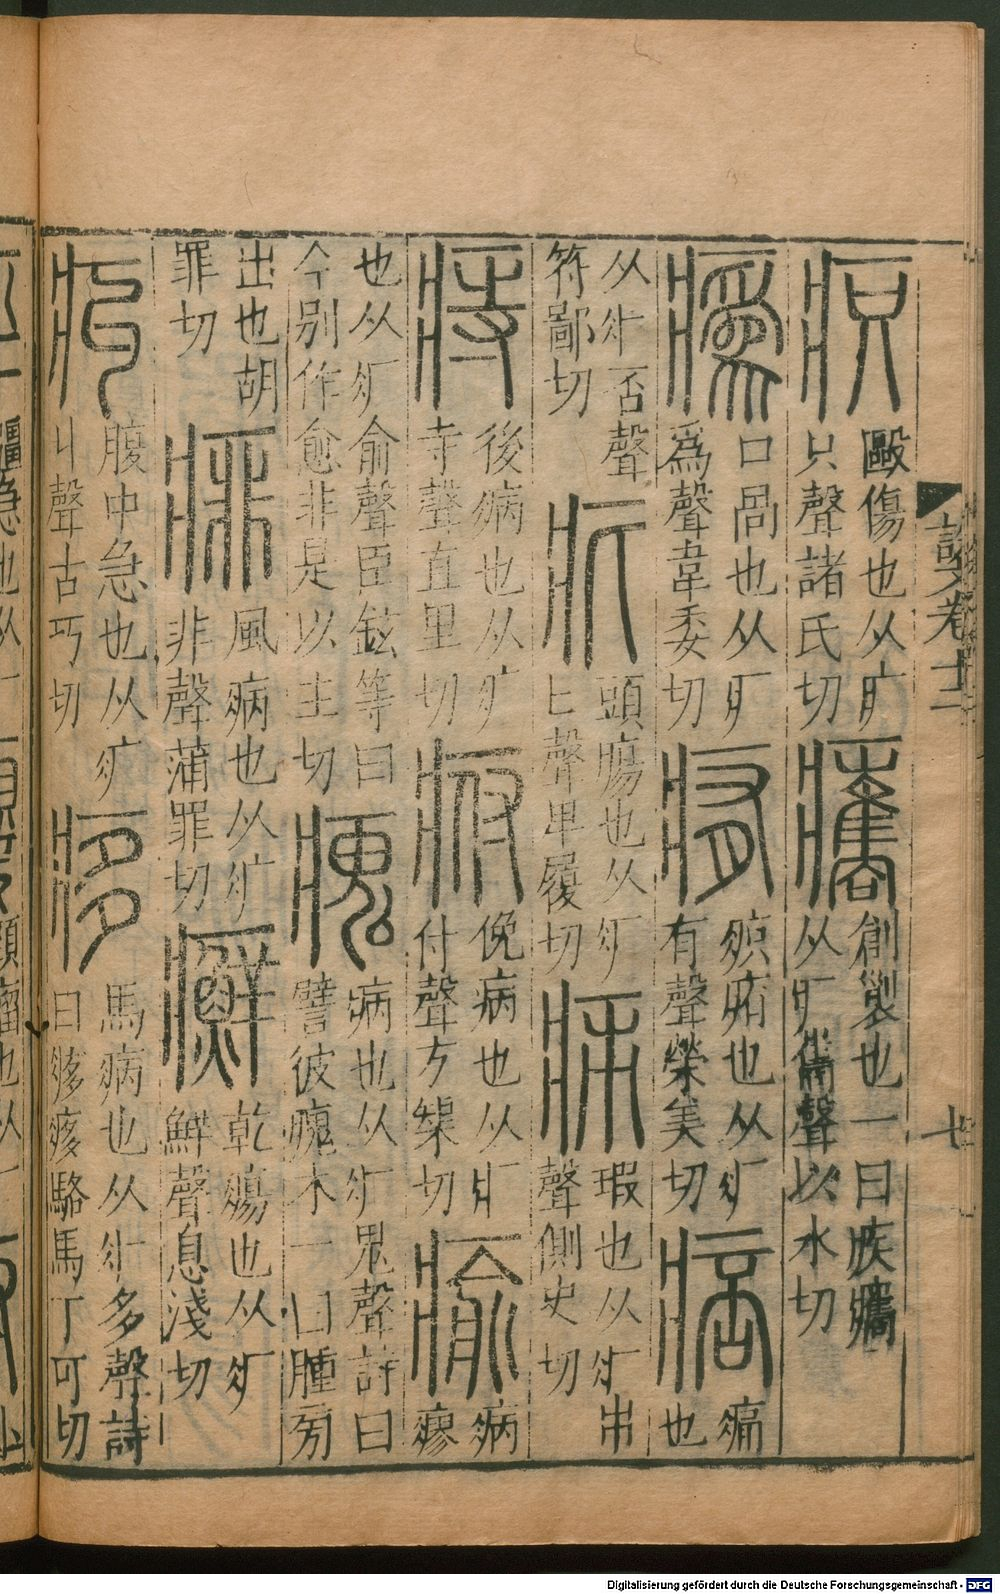 說文卷十二
七
疻
毆傷也从疒
只聲諸氏切
㿚
創裂也一曰疾㿚
从疒巂聲以水切
口咼也从疒
爲聲韋委切
痏
疻痏也从疒
有聲榮美切
痞
痛
也
从疒否聲
符鄙切
疕
頭瘍也从疒
匕聲卑履切
瑕也从疒𠂔
聲側史切
痔
後病也从疒
寺聲直里切
㾈
俛病也从疒
付聲方榘切
瘉
病
瘳
也从疒俞聲臣鉉等曰
今別作愈非是以主切
瘣
病也从疒鬼聲詩曰
譬彼瘣木一曰腫旁
出也胡
罪切
痱
風病也从疒
非聲蒲罪切
癬
乾瘍也从疒
鮮聲息淺切
㽱
腹中急也从疒
丩聲古巧切
痑
馬病也从疒多聲詩
曰痑痑駱馬丁可切
Digitalisierung gefördert durch die Deutsche Forschungsgemeinschaft - DFG